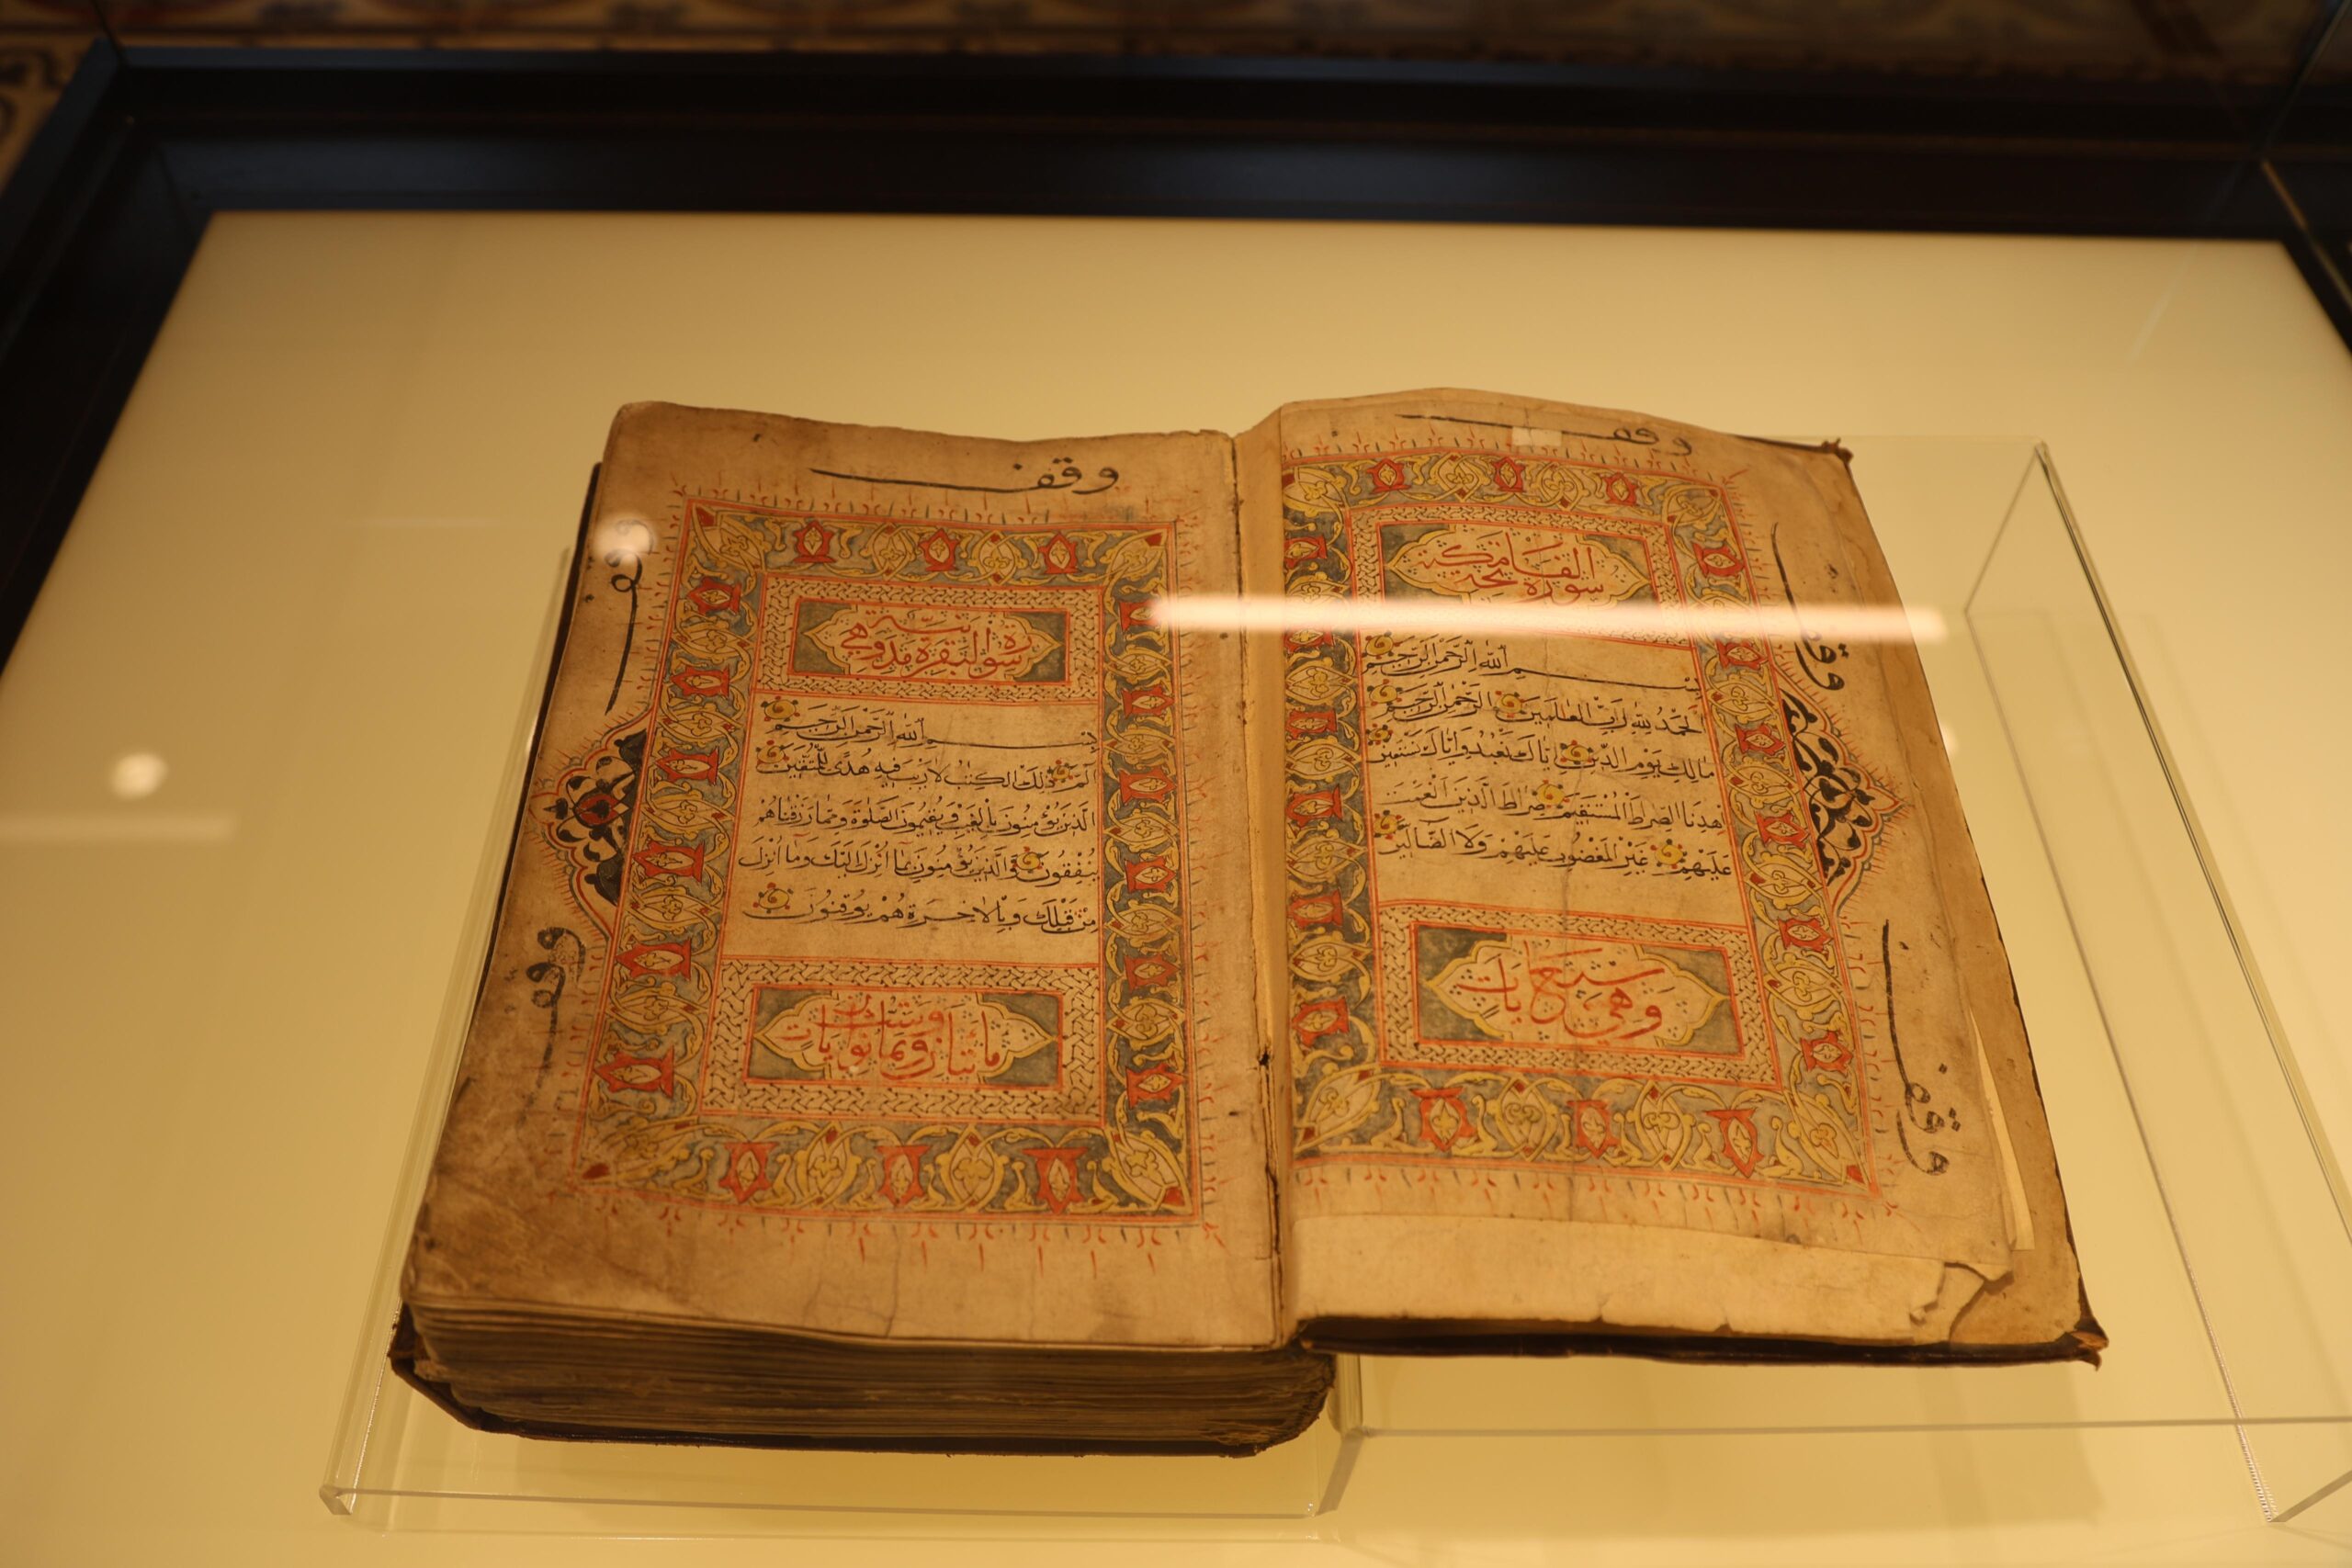 وقف
سورة الفاتحة مكية
بسم الله الرحمن الرحيم
الحمد لله رب العالمين الرحمن الرحيم
مالك يوم الدين اياك نعبد واياك نستعين
اهدنا الصراط المستقيم صراط الذين انعمت
عليهم غير المغضوب عليهم ولا الضالين
وهي سبع ايات
وقف
وقف
وقف
سورة البقرة مدنية وهي
بسم الله الرحمن الرحيم
الم ذلك الكتب لا ريب فيه هدى للمتقين
الذين يؤمنون بالغيب ويقيمون الصلوة ومما رزقناهم
ينفقون والذين يؤمنون بما انزل اليك وما انزل
من قبلك وبالاخرة هم يوقنون
مائتان وثمانون وست ايات
وقف
وقف